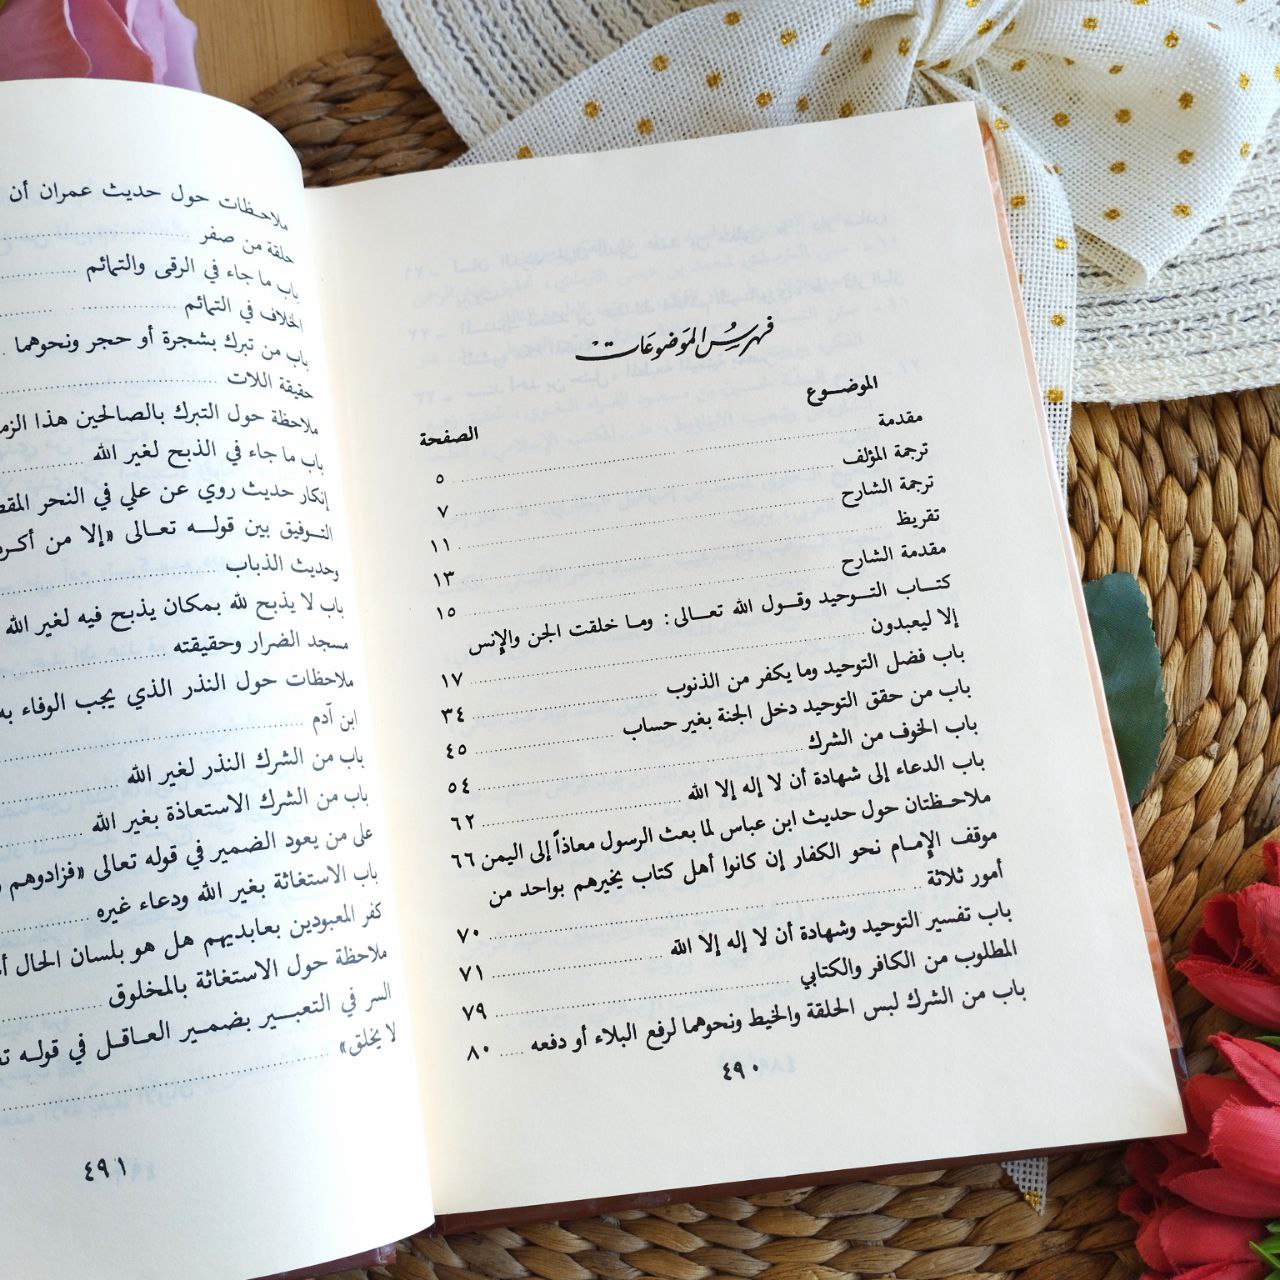 فهرس الموضوعات
الموضوع
الصفحة
مقدمة ٥
ترجمة المؤلف ٧
ترجمة الشارح ١١
تقريظ ١٣
مقدمة الشارح ١٥
كتاب التوحيد وقول الله تعالى: وما خلقت الجن والإنس
إلا ليعبدون ١٧
باب فضل التوحيد وما يكفر من الذنوب ٣٤
باب من حقق التوحيد دخل الجنة بغير حساب ٤٥
باب الخوف من الشرك ٥٤
باب الدعاء إلى شهادة أن لا إله إلا الله ٦٢
ملاحظتان حول حديث ابن عباس لما بعث الرسول معاذاً إلى اليمن ٦٦
موقف الإمام نحو الكفار إن كانوا أهل كتاب يخيرهم بواحد من
أمور ثلاثة ٧٠
باب تفسير التوحيد وشهادة أن لا إله إلا الله ٧١
المطلوب من الكافر والكتابي ٧٩
باب من الشرك لبس الحلقة والخيط ونحوهما لرفع البلاء أو دفعه ٨٠
٤٩٠
ملاحظات حول حديث عمران أن
حلقة من صفر
باب ما جاء في الرقى والتمائم
الخلاف في التمائم
باب من تبرك بشجرة أو حجر ونحوهما
حقيقة اللات
ملاحظة حول التبرك بالصالحين هذا
باب ما جاء في الذبح لغير الله
إنكار حديث روي عن علي في النحر
التوفيق بين قوله تعالى «إلا من
وحديث الذباب
باب لا يذبح لله بمكان يذبح فيه لغير الله
مسجد الضرار وحقيقته
ملاحظات حول النذر الذي يجب الوفاء به
ابن آدم
باب من الشرك النذر لغير الله
باب من الشرك الاستعاذة بغير الله
على من يعود الضمير في قوله تعالى «فزادوهم
باب الاستغاثة بغير الله ودعاء غيره
كفر المعبودين بعابديهم هل هو بلسان الحال
ملاحظة حول الاستغاثة بالمخلوق
السر في التعبير بضمير العاقل في قوله
لا يخلق»
٤٩١